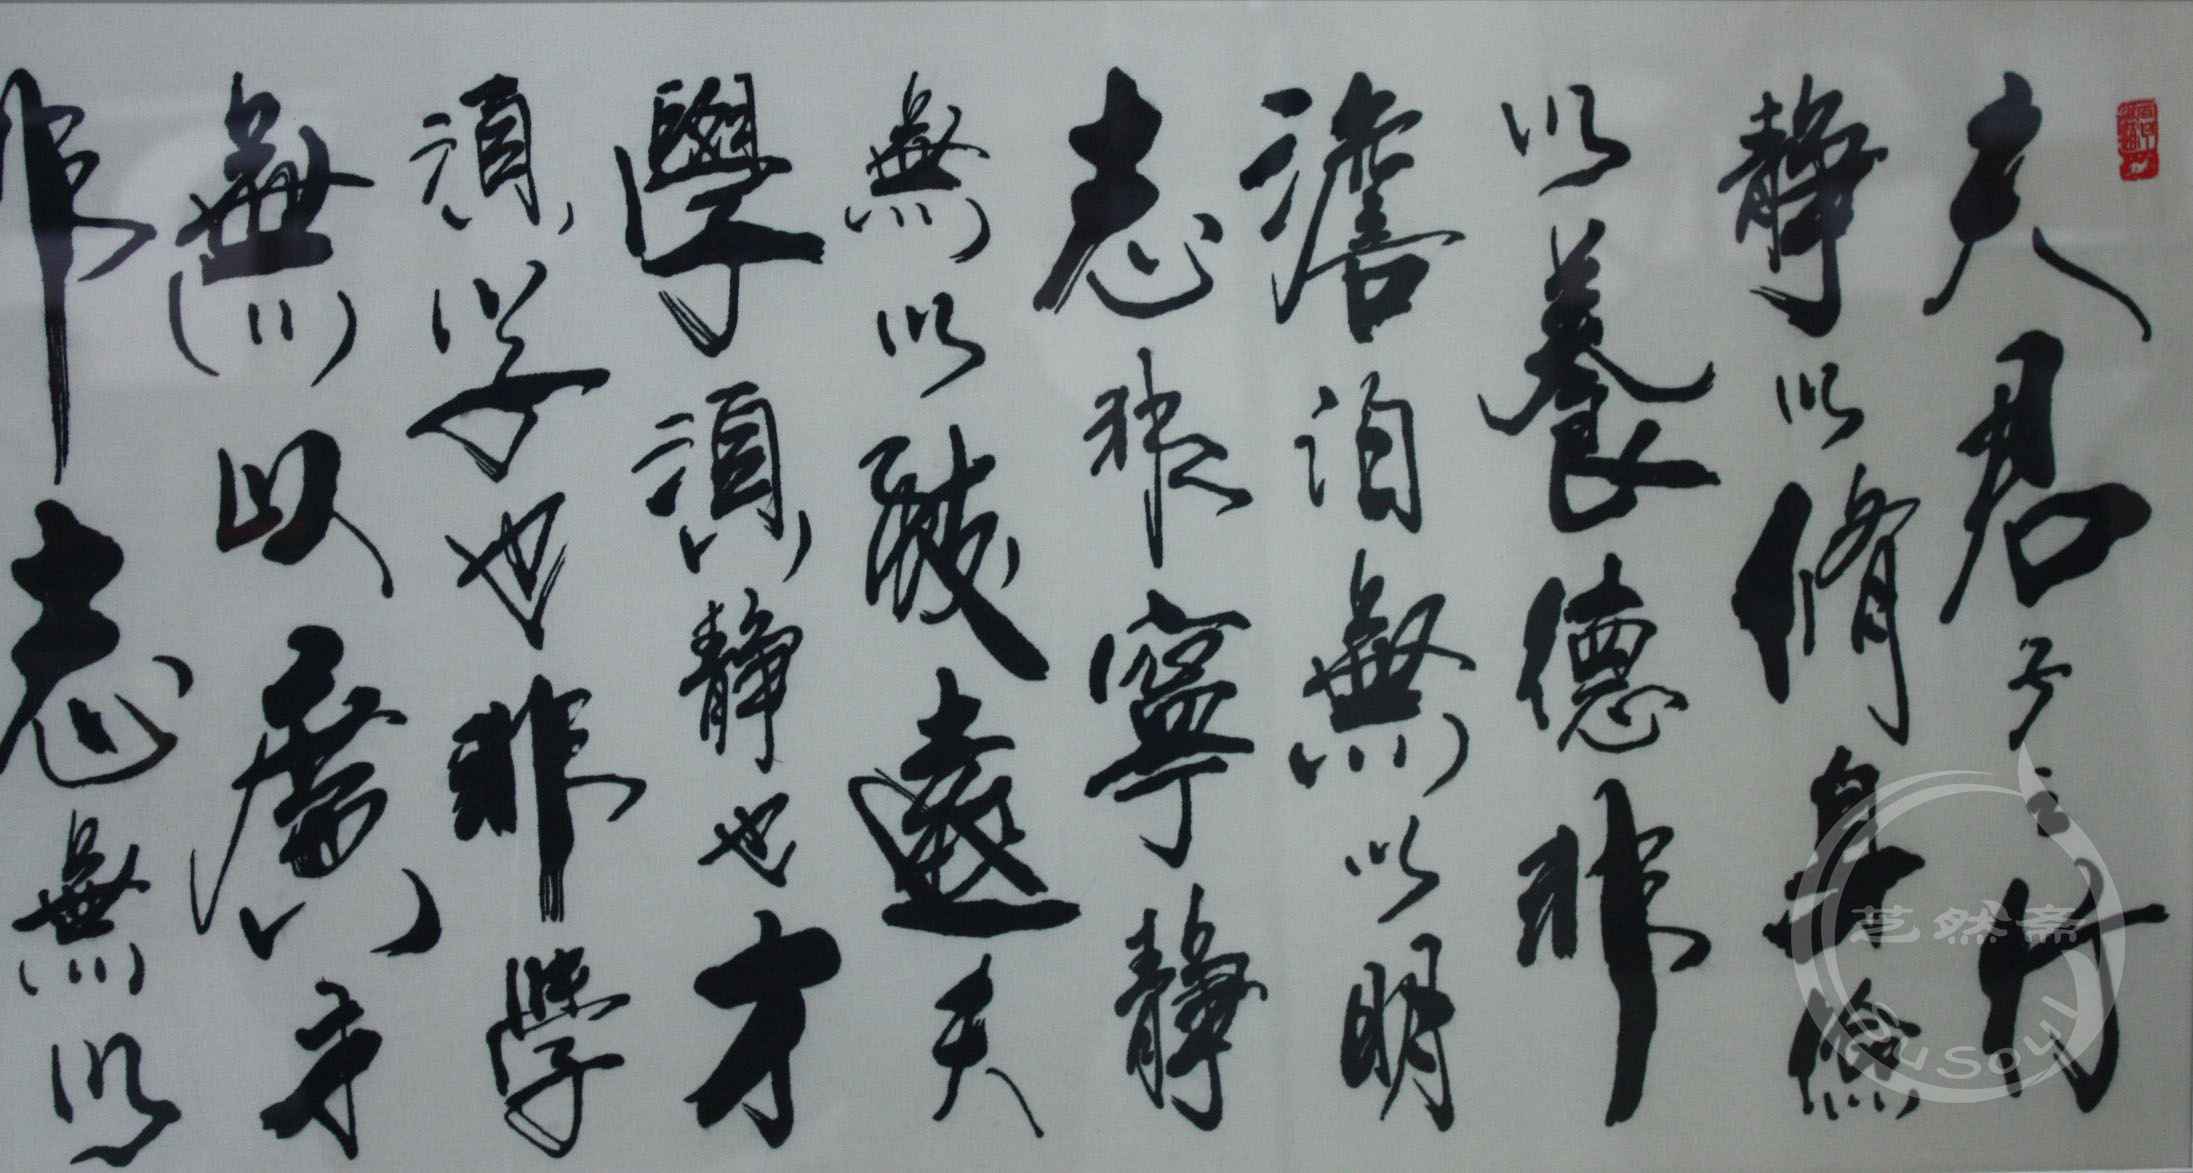 夫君子之行
靜以脩身儉
以養德非
澹泊無以明
志非寧靜
無以致遠夫
學須靜也才
須学也非學
無以廣才
非志無以